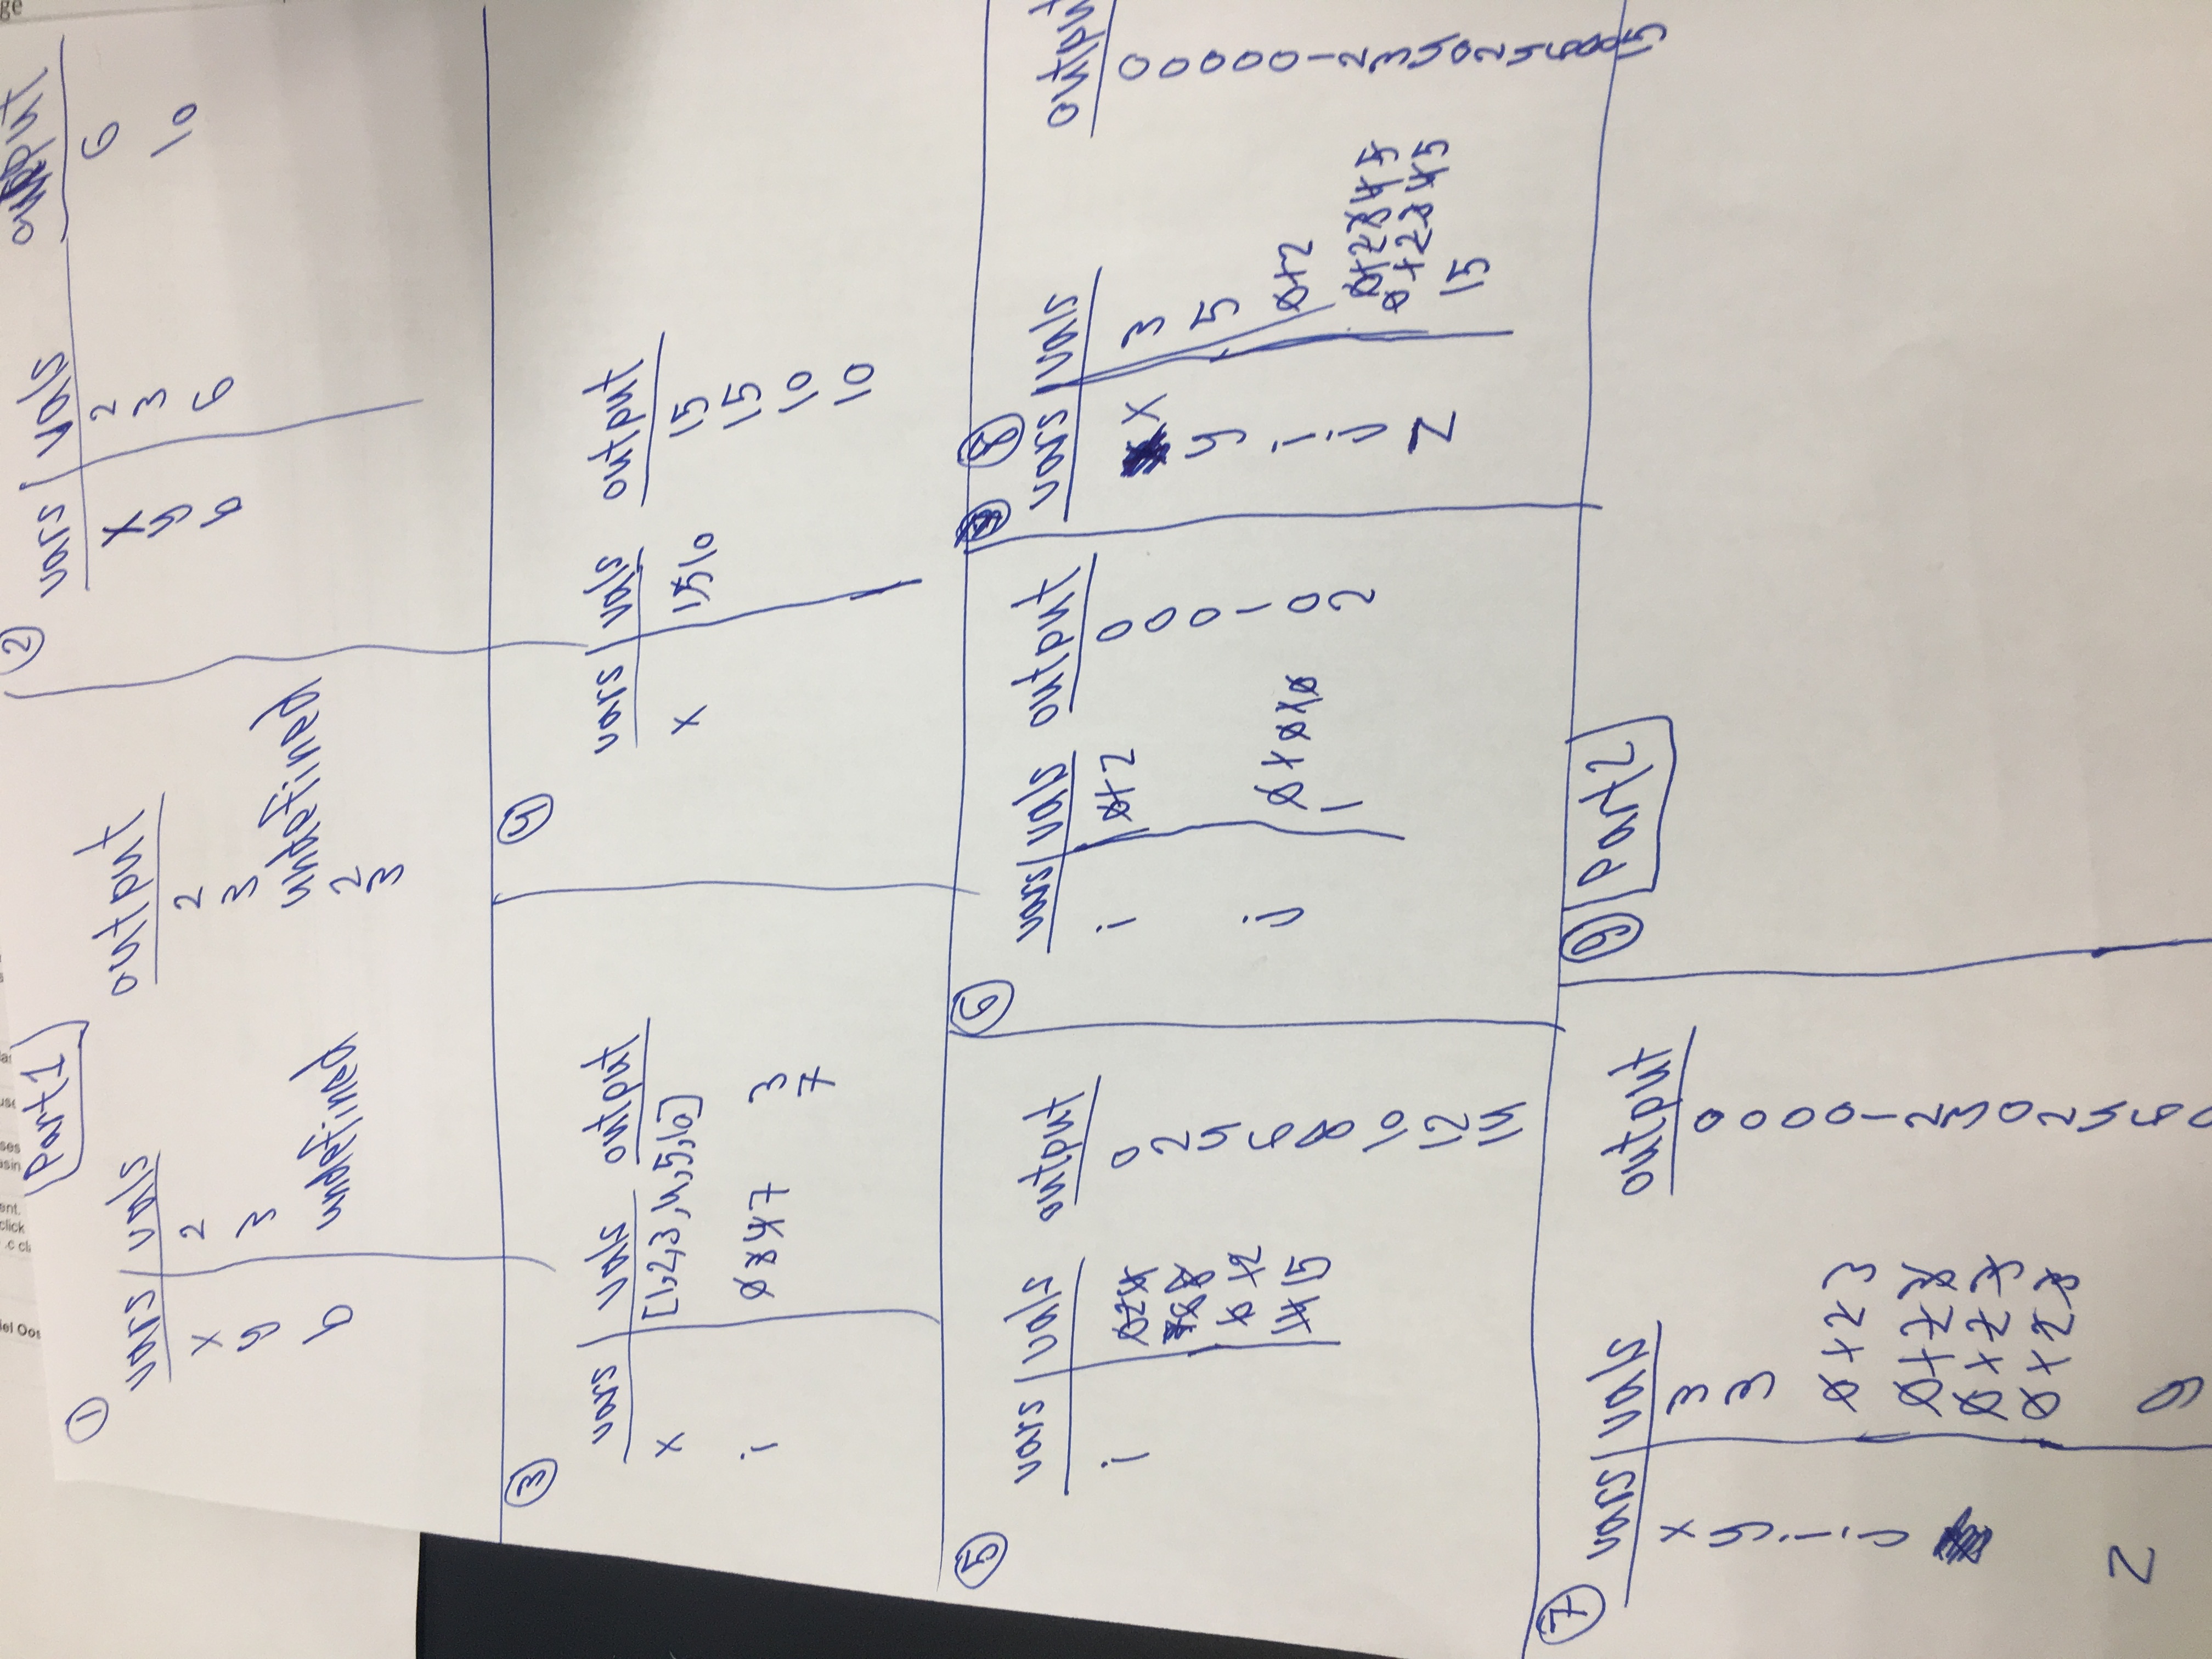 Part 1
①
vars vals output
x 2 2
y 3 3
b undefined undefined
2
3
②
vars vals output
x 2 6
y 3 10
b 6
③
vars vals output
x [1,2,3,4,5,6]
i 0 3 4 7 3
7
④
vars vals output
x 15 10 15
15
10
10
⑤
vars vals output
i 0 2 4 0
6 8 2
10 12 4
14 15 6
8
10
12
14
⑥
vars vals output
i 0 1 2 0
0
0
1
j 0 1 0 1 0 0
1 2
⑧
vars vals output
x 3 0
y 5 0
i 0 1 2 0
j 0 1 2 3 4 5 0
0 1 2 3 4 5 0
z 15 1
2
3
4
0
2
4
6
8
15
⑦
vars vals output
x 3 0
y 3 0
i 0 1 2 3 0
j 0 1 2 3 0
0 1 2 3 1
0 1 2 3 2
z 9 3
0
2
4
6
⑨
Part 2